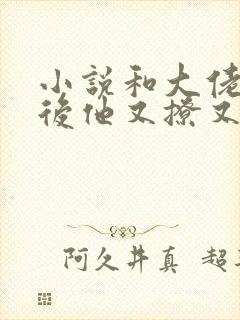 小説和大佬
後他又撩又
阿久井真 超